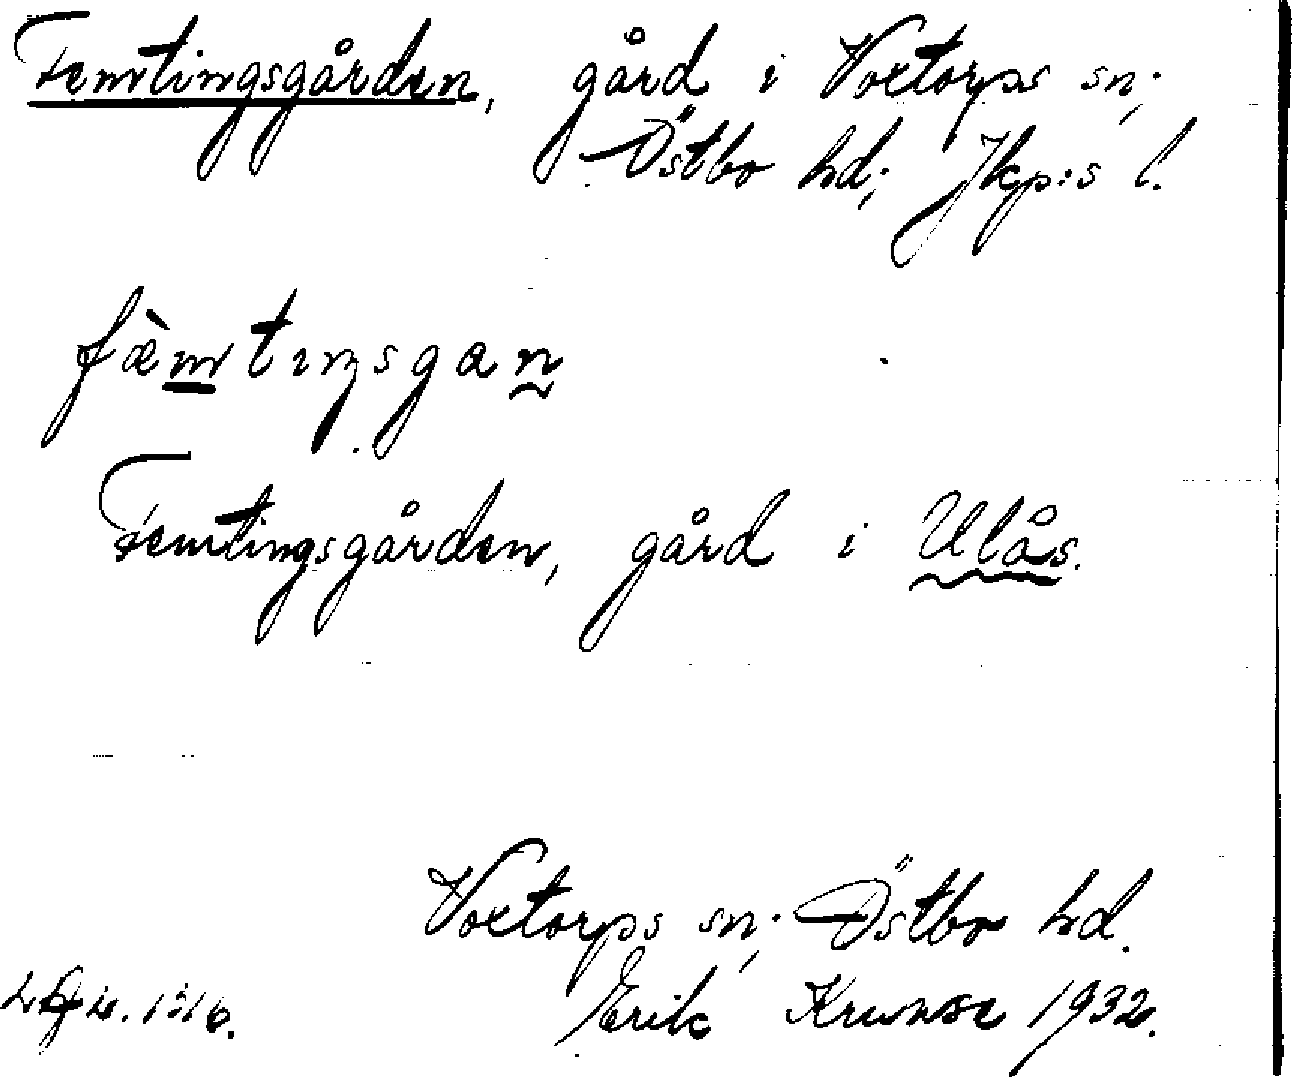 Femtingsgården, gård i Voxtorps sn;
Östbo hd; Jkp:s l.
fæ̀mtıŋsgan
Femtingsgården, gård i Ulås.
Voxtorps sn; Östbo hd.
Erik Krunse 1932.